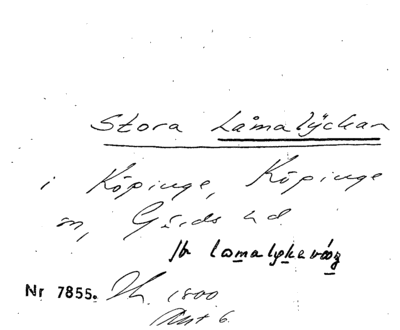 Stora Låmalÿckan
i Köpinge, Köpinge
sn, Gärds hd.
/br lomalykevång
Nr 7855. Lh. 1800
Akt 6.